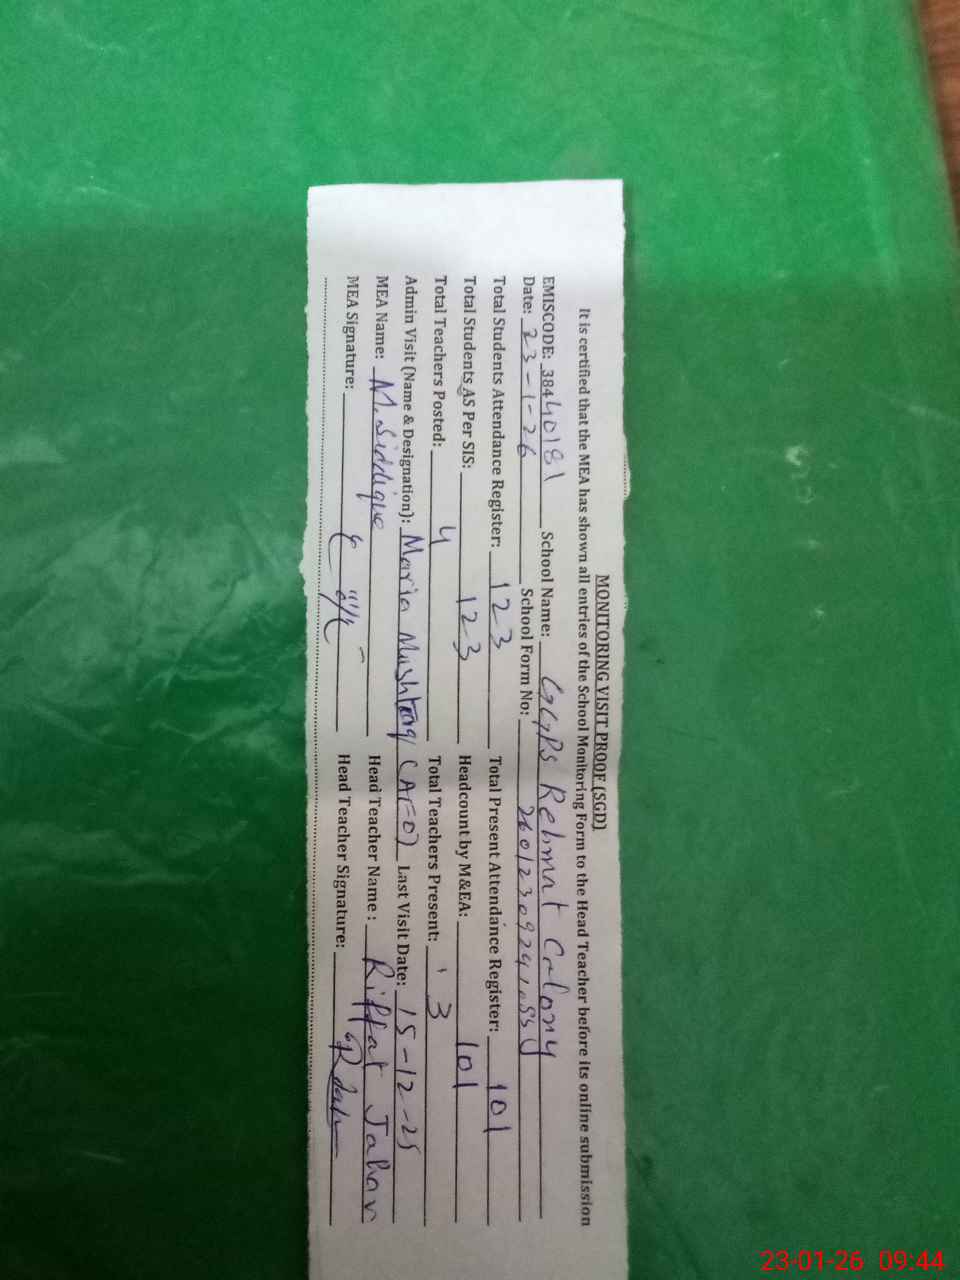 MONITORING VISIT PROOF (SGD)
It is certified that the MEA has shown all entries of the School Monitoring Form to the Head Teacher before its online submission
EMISCODE: 38440181 School Name: GGPS Rehmat Colony
Date: 23-1-26 School Form No:
Total Students Attendance Register: 123 Total Present Attendance Register: 101
Total Students AS Per SIS: 123 Headcount by M&EA: 101
Total Teachers Posted: 4 Total Teachers Present: 3
Admin Visit (Name & Designation): Maria Mushtaq (AEO) Last Visit Date: 15-12-25
MEA Name: M. Siddique Head Teacher Name : Riffat Jahan
MEA Signature: Head Teacher Signature:
23-01-26 09:44